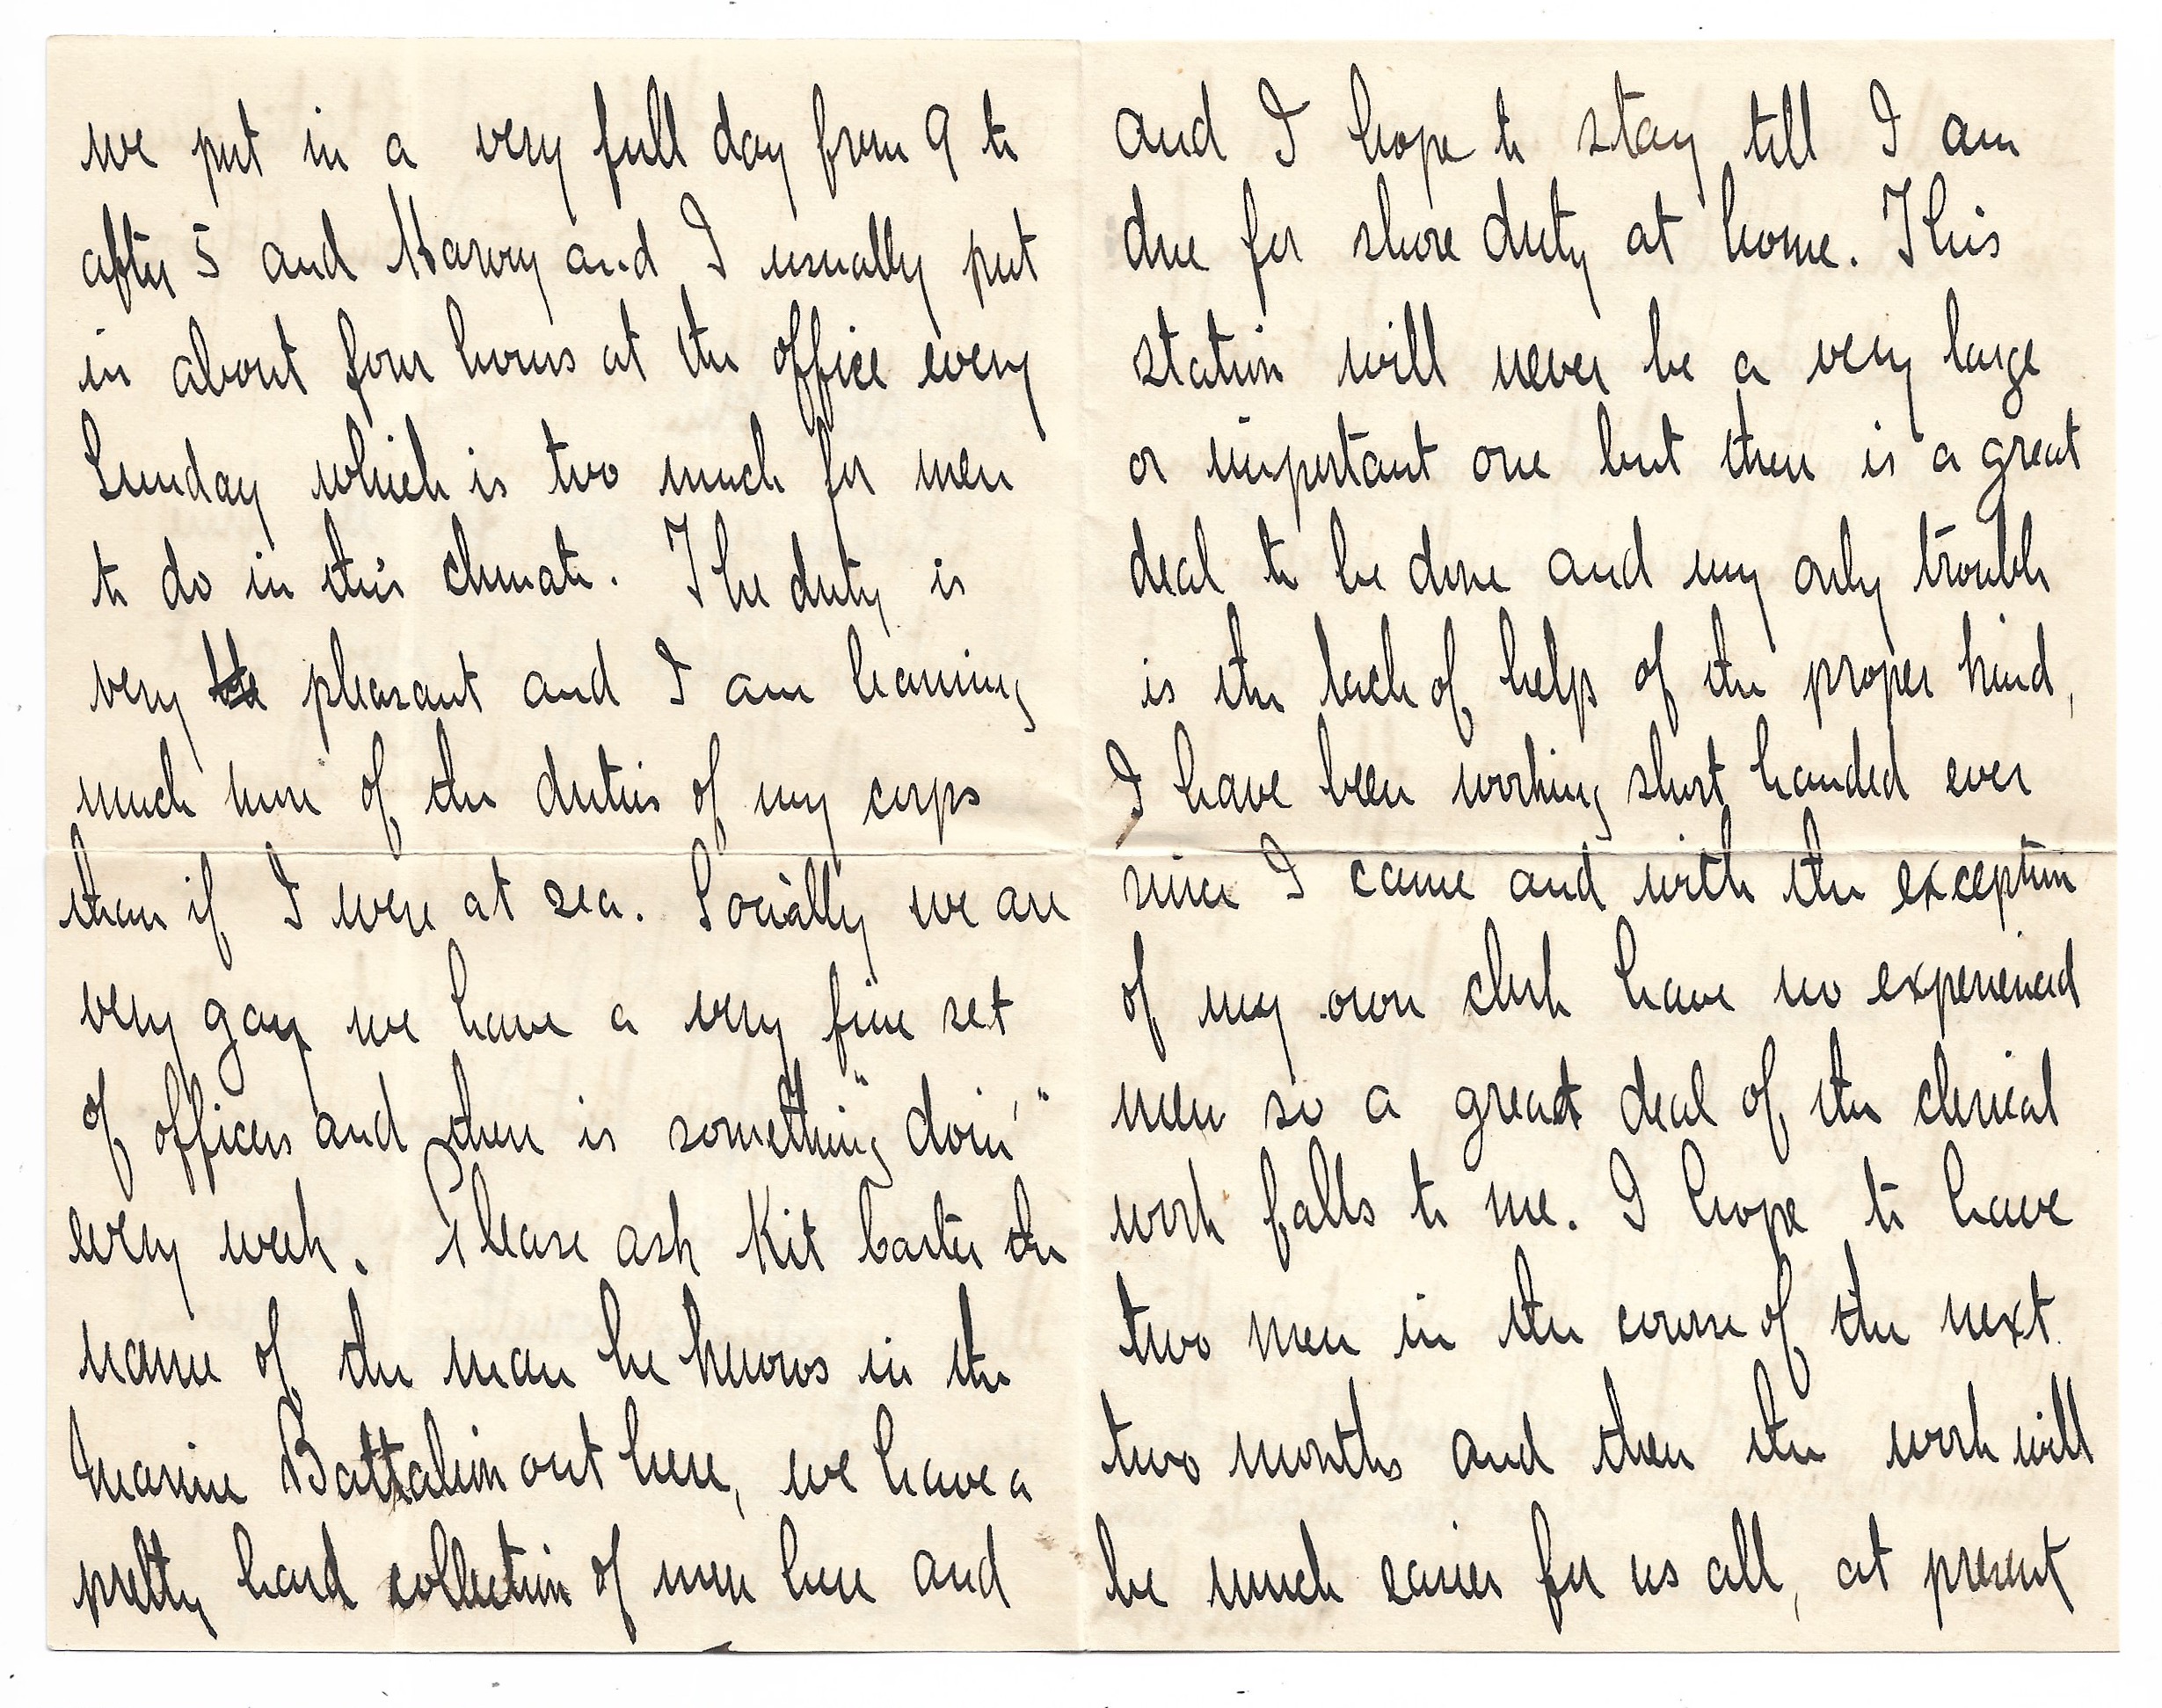 we put in a very full day from 9 to
after 5 and Harvy and I usually put
in about four hours at the office every
Sunday which is two much for men
to do in this climate. The duty is
very pleasant and I am learning
much more of the duties of my corps
than if I were at sea. Socially we are
very gay we have a very fine set
of officers and there is something "doin'"
every week. Please ask Kit Carter the
name of the man he knows in the
Marine Battalion out here, we have a
pretty hard collection of men here and
and I hope to stay till I am
due for shore duty at home. This
station will never be a very large
or important one but there is a great
deal to be done and my only trouble
is the lack of help of the proper kind,
I have been working short handed ever
since I came and with the exception
of my own clerk have no experienced
men so a great deal of the clerical
work falls to me. I hope to have
two men in the course of the next
two months and then the work will
be much easier for us all, at present